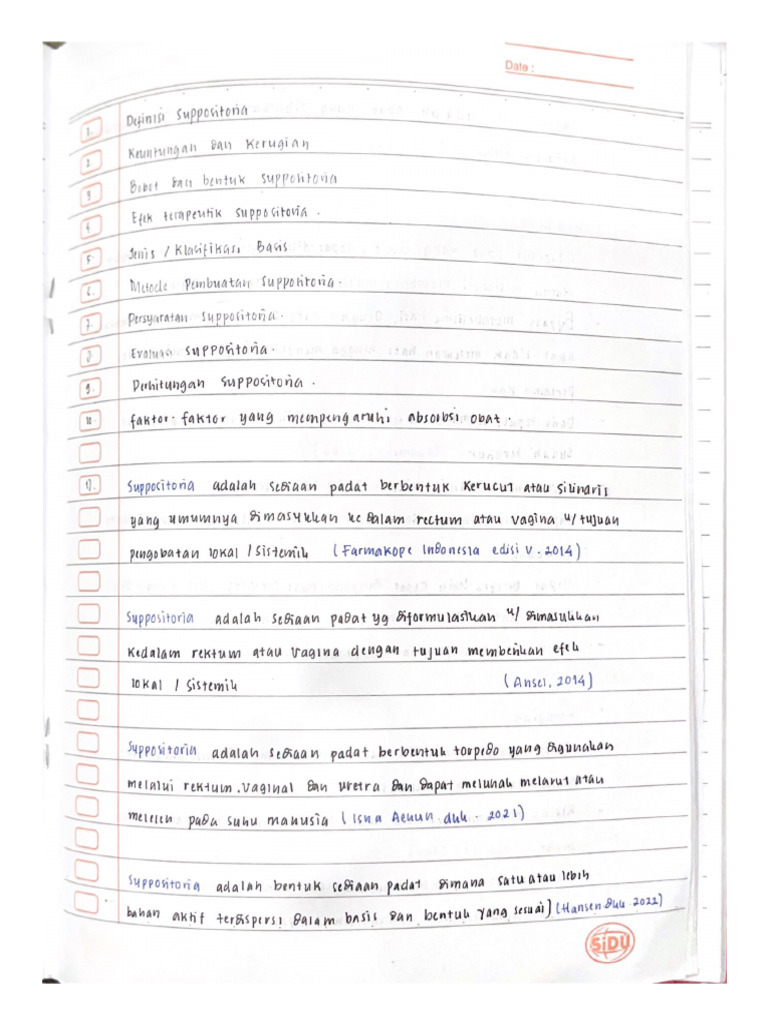 Date :
1. Definisi Suppositoria
2. Keuntungan dan Kerugian
3. Bobot dan bentuk suppositoria
4. Efek terapeutik suppositoria.
5. Jenis / Klasifikasi Basis
6. Metode Pembuatan Suppositoria.
7. Persyaratan Suppositoria.
8. Evaluasi Suppositoria.
9. Perhitungan Suppositoria.
10. faktor-faktor yang mempengaruhi absorbsi obat.
1). Suppositoria adalah sediaan padat berbentuk kerucut atau silindris
yang umumnya dimasukkan ke dalam rectum atau vagina u/ tujuan
pengobatan lokal / sistemik (Farmakope Indonesia edisi V. 2014)
Suppositoria adalah sediaan padat yg diformulasikan u/ dimasukkan
kedalam rektum atau vagina dengan tujuan memberikan efek
lokal / sistemik (Ansel, 2014)
Suppositoria adalah sediaan padat berbentuk torpedo yang digunakan
melalui rektum, vaginal dan uretra dan dapat melunak melarut atau
meleleh pada suhu manusia (Isna Aenun dkk. 2021)
Suppositoria adalah bentuk sediaan padat dimana satu atau lebih
bahan aktif terdispersi dalam basis dan bentuk yang sesuai] (Hansen dkk 2022)
SiDU